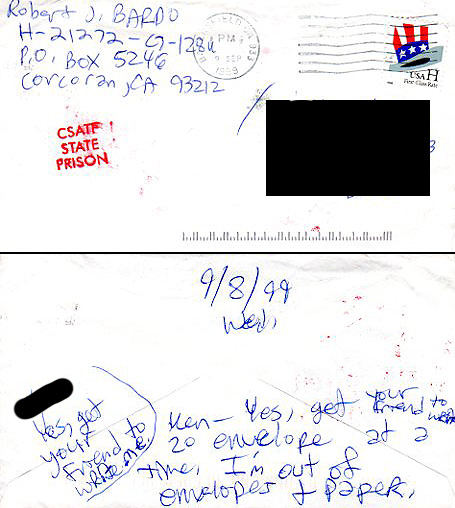 Robert J. BARDO
H-21272-G-128u
P.O. BOX 5246
Corcoran, CA 93212
PM
SEP
1999
USA H
First-Class Rate
CSATF
STATE
PRISON
9/8/99
Wed.
Yes, get
your
friend to
write me.
Ken- Yes, get your friend to write
20 envelope at a
time. I'm out of
envelopes & paper.